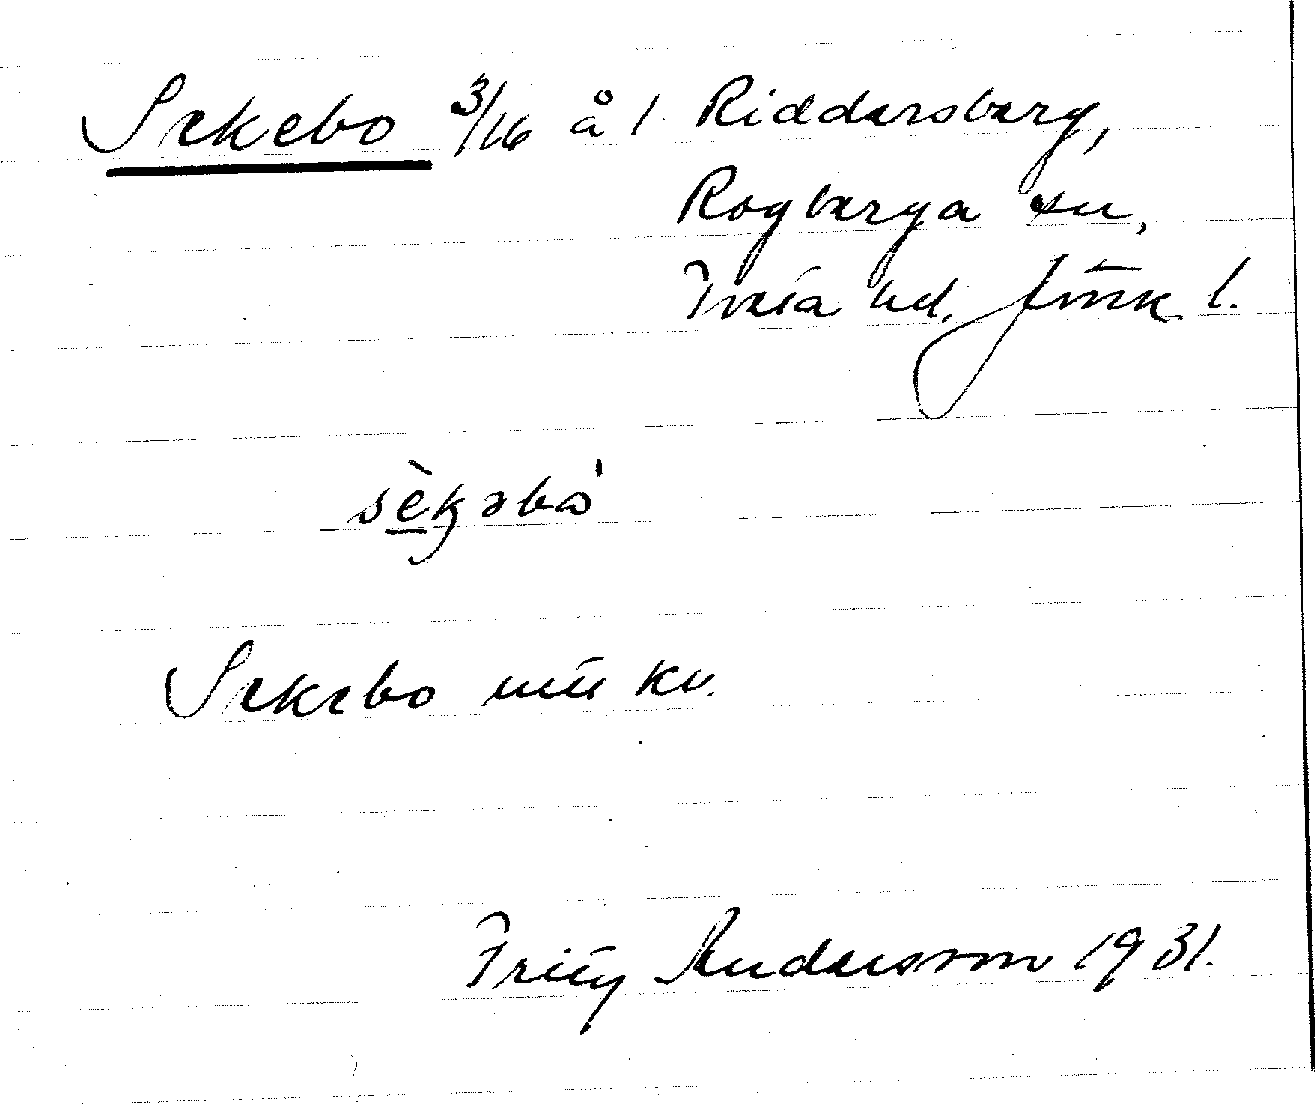 Sekebo 3/16 å 1 Riddersberg,
Rogberga sn,
Tveta hd. Jönk l.
sèkəbo'
Sekebo utt kv.
Fritz Andersson 1931.